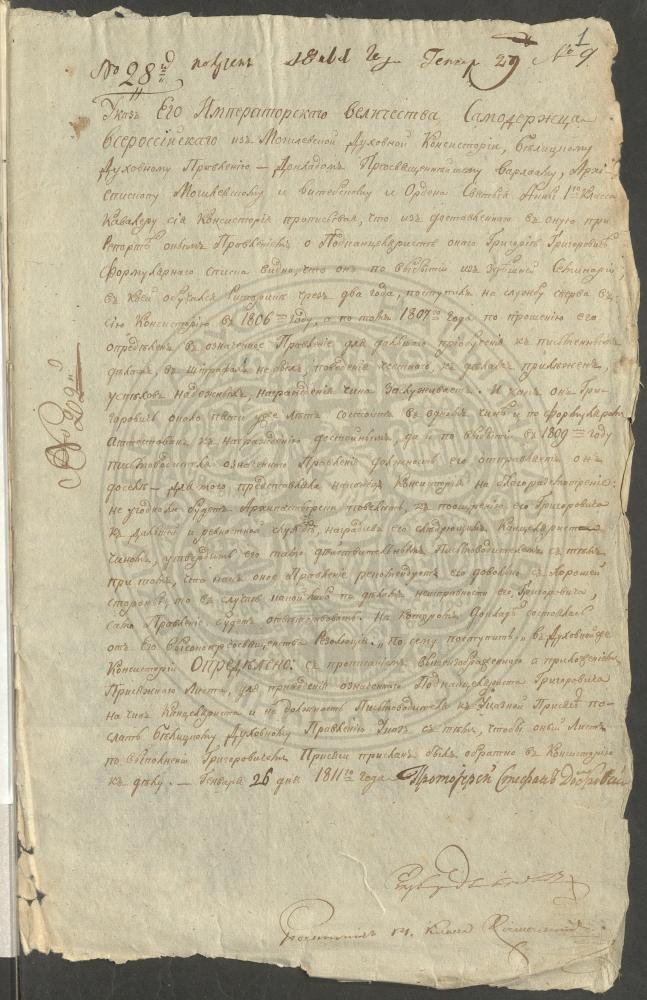 No 28й получен 1811 Генвар 29 No 9
1
Указъ Его Императорскаго Величества Самодержца
Всероссійскаго изъ Могилевской Духовной Консисторіи, Бѣлицкому
Духовному Правленію — Докладомъ Преосвященнѣйшему Варлааму, Архі-
епископу Могилевскому и Витебскому и Ордена Святыя Анны 1го класса
Кавалеру сія Консисторія прописывая, что изъ доставленнаго въ оную при
Репортѣ онымъ Правленіемъ о Подканцеляристѣ онаго Григоріѣ Григоровичѣ
Формулярнаго списка видно что онъ по выбытіи изъ Семинаріи,
въ коей обучался Риторики чрезъ два года, поступилъ на службу сперва въ
сію Консисторію въ 1806мъ году, а по томъ 1807го года по прошенію его
опредѣленъ въ означенное Правленіе для дальнаго пріобученія къ письменнымъ
дѣламъ, въ штрафахъ не былъ, поведенія честнаго, къ дѣламъ приложенъ,
успѣховъ надежныхъ, награжденія чина заслуживаетъ. И какъ онъ Гри-
горовичъ около пяти уже лѣтъ состоитъ въ одномъ чинѣ и по формулярамъ
аттестованъ къ награжденію достойнымъ, да и по выбытіи въ 1809мъ году
письмоводителя означеннаго Правленія должность его отправляетъ онъ
доселѣ — для того представляла Консисторія на благоразсмотреніе:
не угодноли будетъ Архипастырски повелѣть, къ поощренію его Григоровича
къ дальней и ревностной службѣ, наградивъ его слѣдующимъ Канцеляриста
чиномъ, утвердить его тамо дѣйствительнымъ Письмоводителемъ съ тѣмъ
при томъ, что какъ оное Правленіе рекомендуетъ его довольно съ хорошей
стороны, то въ случаѣ какой либо по дѣламъ неисправности его Григоровича,
само Правленіе будетъ отвѣтствовать. На которомъ Докладѣ состоялась
отъ Его Высокопреосвященства Резолюція: „По сему поступить„ въ Духовной
Консисторіи Опредѣлено: съ прописаніемъ вышеизображеннаго и приложеніемъ
Присяжнаго Листа, для приведенія означеннаго Подканцеляриста Григоровича
на чинъ Канцеляриста и на должность Письмоводителя къ Присягѣ по-
слать Бѣлицкому Духовному Правленію Указъ съ тѣмъ, чтобы оный Листъ
по выполненіи Григоровичемъ Присяги присланъ былъ обратно въ Консисторію
къ дѣлу. — Генваря 26 дня 1811го года Протоіерей Стефанъ
No 202й
14. класса